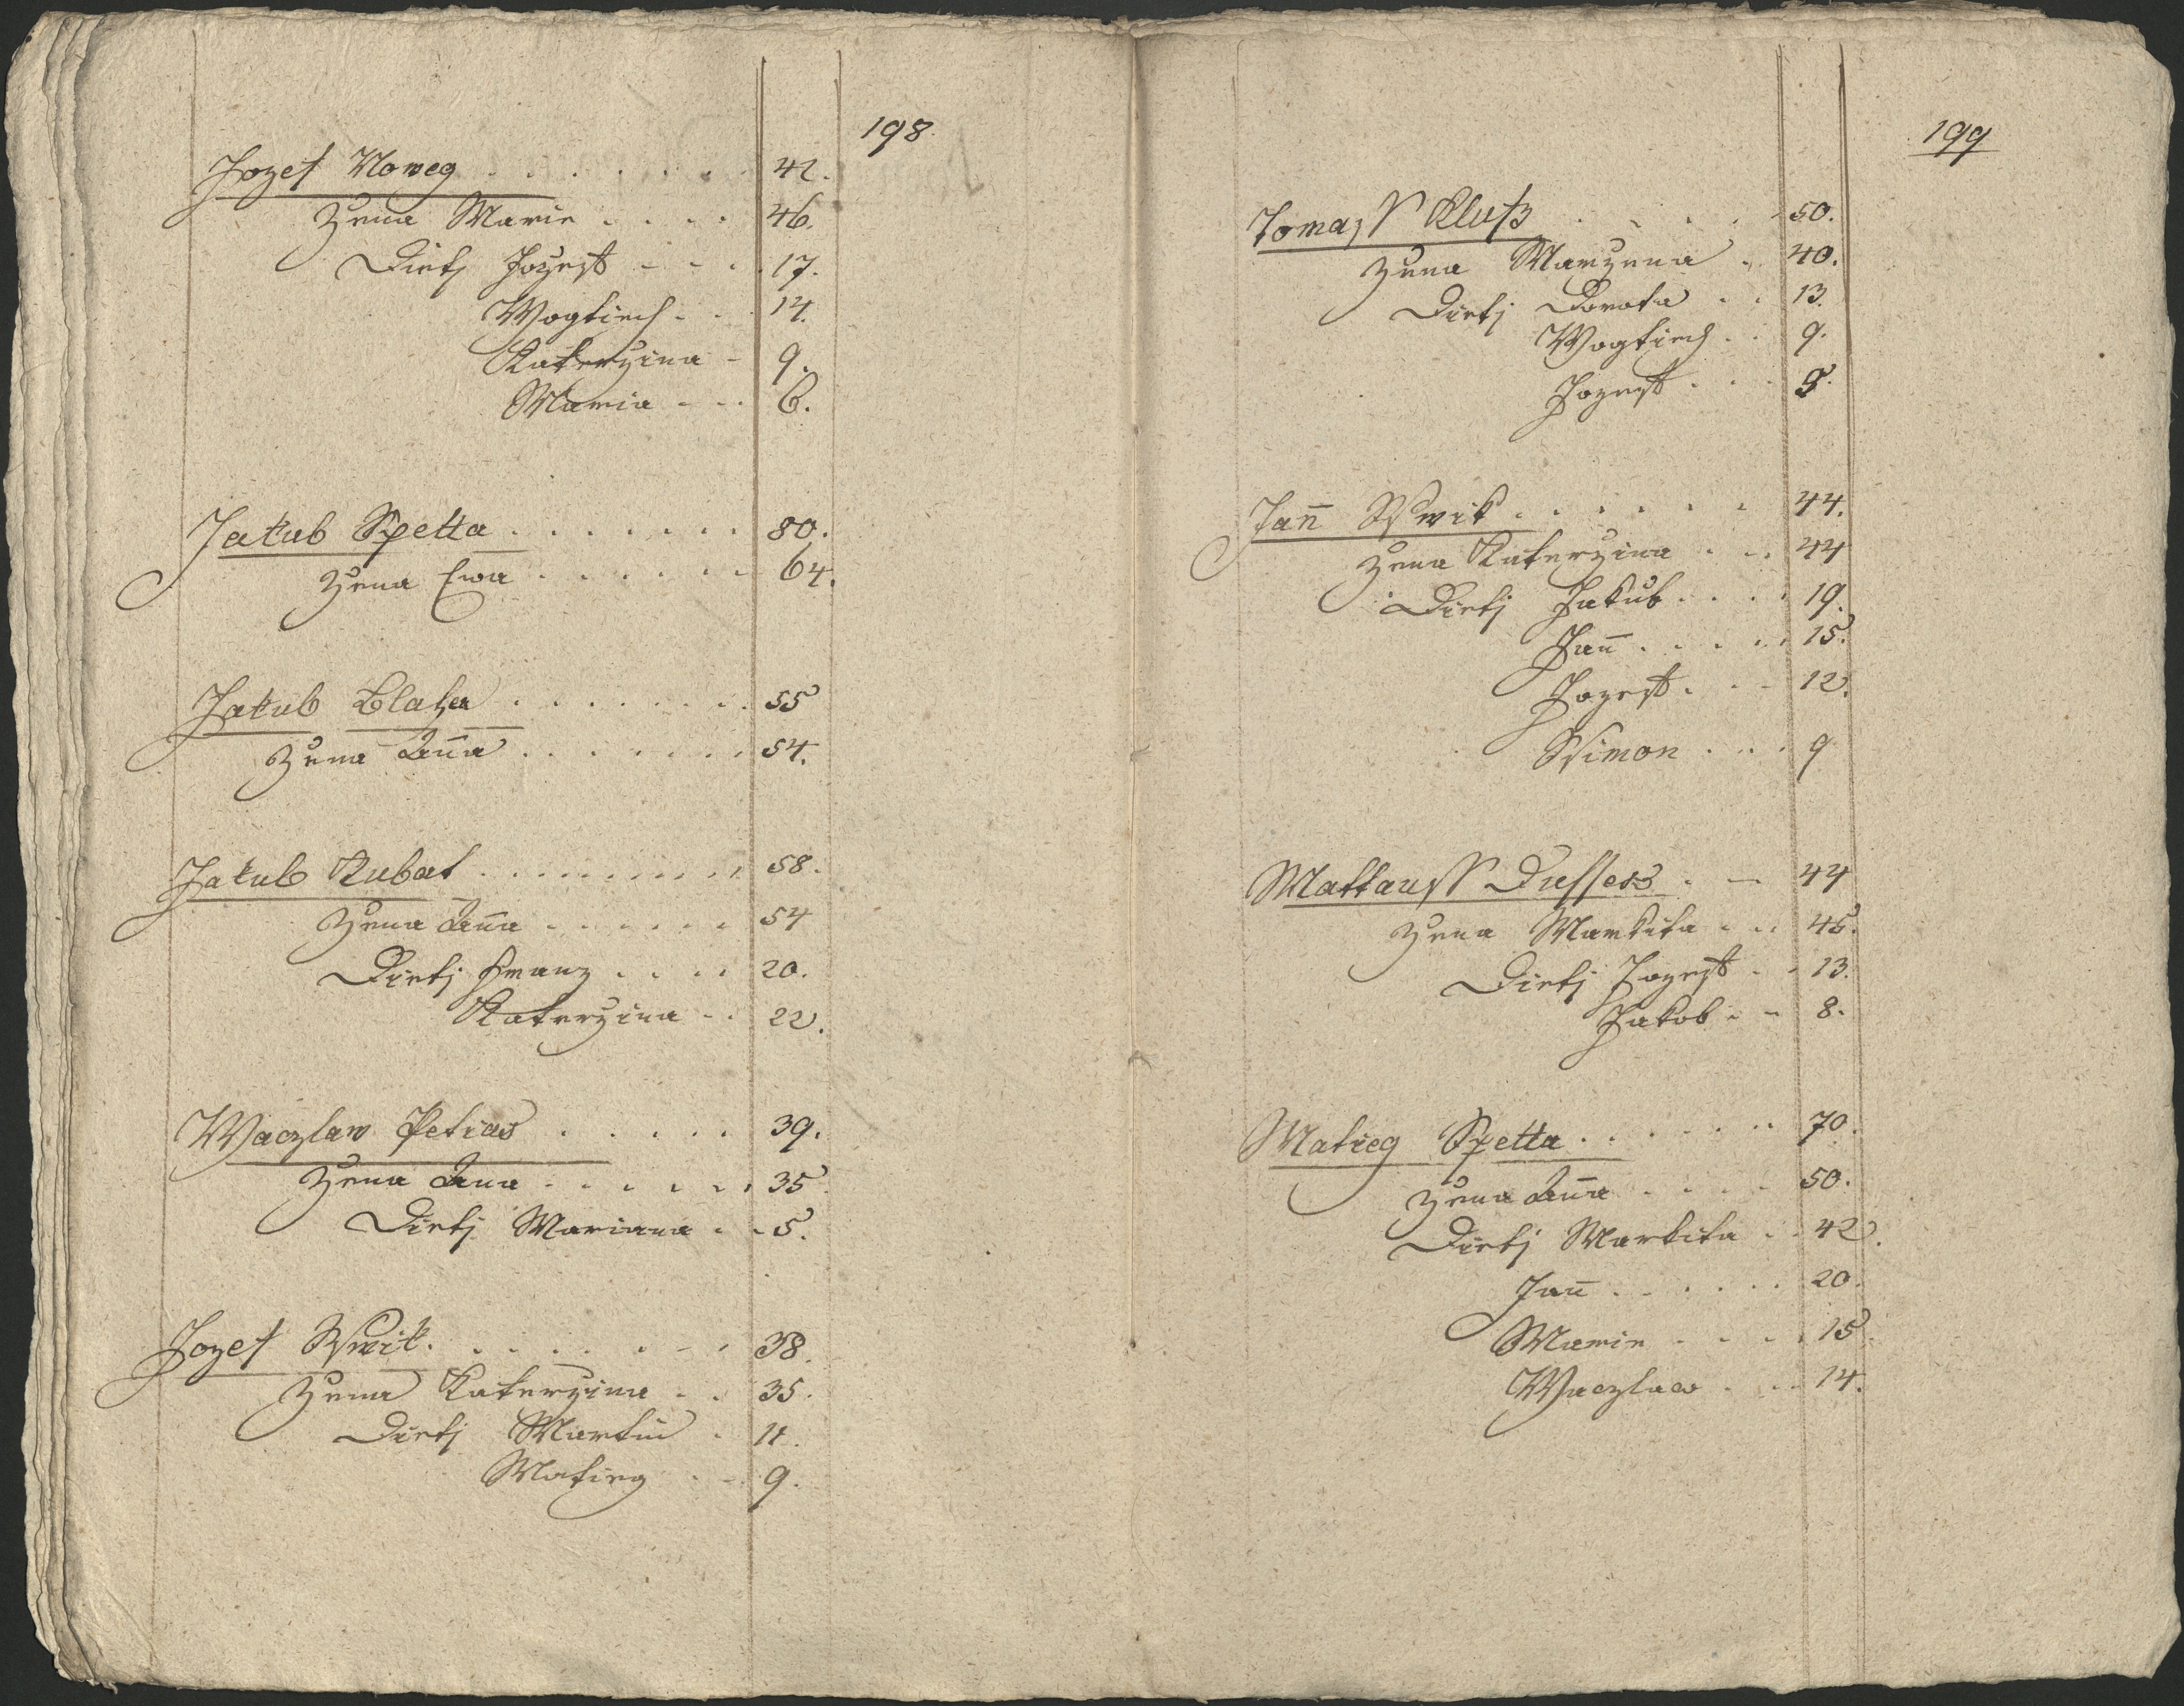 198
Jozef Noweg . . . . . . . 42.
Žena Marie . . . . 46.
Dietj Jozeff - - . . 17.
Wogtiech - . . 14.
Katerzina - 9.
Maria - - . 6.
Jakub Spetta . . . . . . . 80.
Žena Ewa . . . . . . 64.
Jakub Blaha . . . . . . . 55
Žena Anna . . . . . . . 54.
Jakub Kubat . . . . . . . . . 58.
Žena Anna . . . . . . 54
Dietj Franz . . . . 20.
Katerzina - . 22.
Waczlaw Petras . . . . . 39.
Žena Anna . . . . . . 35
Dietj Mariana . . 5.
Jozef Swik . . . . . . - . 38.
Žena Katerzina . . 35.
Dietj Martin . 11.
Matieg . - 9.
199
Tomass Kluß . . . . . 50.
Žena Marzena . 40.
Dietj Dorota . . 13.
Wogtiech . . 9.
Jozeff . . . 8.
Jan̄ Swik . . . . . . 44.
Žena Katerzina . . . 44
Dietj Jakub . . . . 19.
Jan̄ . . . . . 15.
Jozeff . . - 12.
Ssimon . . . 9
Mattauss Dusses . - 44
Žena Markita . . . 45.
Dietj Jozeff . . 13.
Jakob - - 8.
Matieg Spetta . . . . . . . 70.
Žena Anna . . . . 50.
Dietj Markita . . 42.
Jan̄ . . . . . . 20.
Marie - . . . 15.
Waczlaw . . . 14.